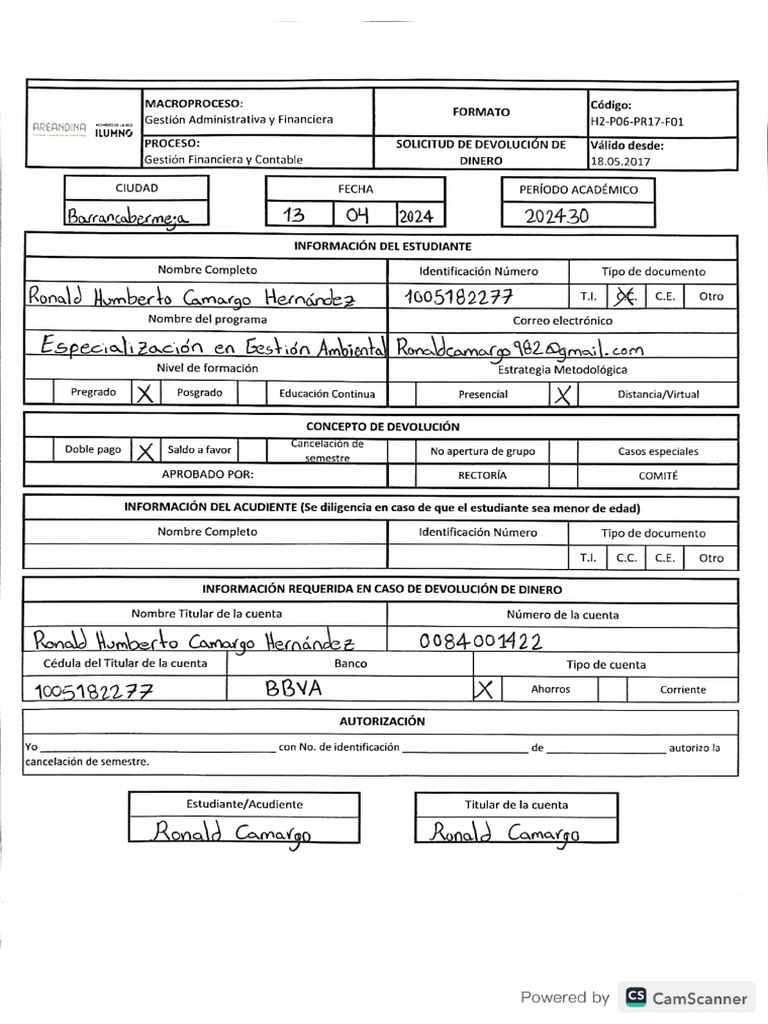 AREANDINA
MIEMBRO DE LA RED
ILUMNO
MACROPROCESO:
Gestión Administrativa y Financiera
FORMATO
Código:
H2-P06-PR17-F01
PROCESO:
Gestión Financiera y Contable
SOLICITUD DE DEVOLUCIÓN DE
DINERO
Válido desde:
18.05.2017
CIUDAD FECHA PERÍODO ACADÉMICO
Barrancabermeja 13 04 2024 202430
INFORMACIÓN DEL ESTUDIANTE
Nombre Completo Identificación Número Tipo de documento
Ronald Humberto Camargo Hernández 1005182277 T.I. X C.C. C.E. Otro
Nombre del programa Correo electrónico
Especialización en Gestión Ambiental Ronaldcamargo982@gmail.com
Nivel de formación Estrategia Metodológica
Pregrado X Posgrado Educación Continua Presencial X Distancia/Virtual
CONCEPTO DE DEVOLUCIÓN
Doble pago X Saldo a favor Cancelación de semestre No apertura de grupo Casos especiales
APROBADO POR: RECTORÍA COMITÉ
INFORMACIÓN DEL ACUDIENTE (Se diligencia en caso de que el estudiante sea menor de edad)
Nombre Completo Identificación Número Tipo de documento
T.I. C.C. C.E. Otro
INFORMACIÓN REQUERIDA EN CASO DE DEVOLUCIÓN DE DINERO
Nombre Titular de la cuenta Número de la cuenta
Ronald Humberto Camargo Hernández 0084001422
Cédula del Titular de la cuenta Banco Tipo de cuenta
1005182277 BBVA X Ahorros Corriente
AUTORIZACIÓN
Yo ____ con No. de identificación ____ de ____ autorizo la
cancelación de semestre.
Estudiante/Acudiente Titular de la cuenta
Ronald Camargo Ronald Camargo
Powered by CS CamScanner